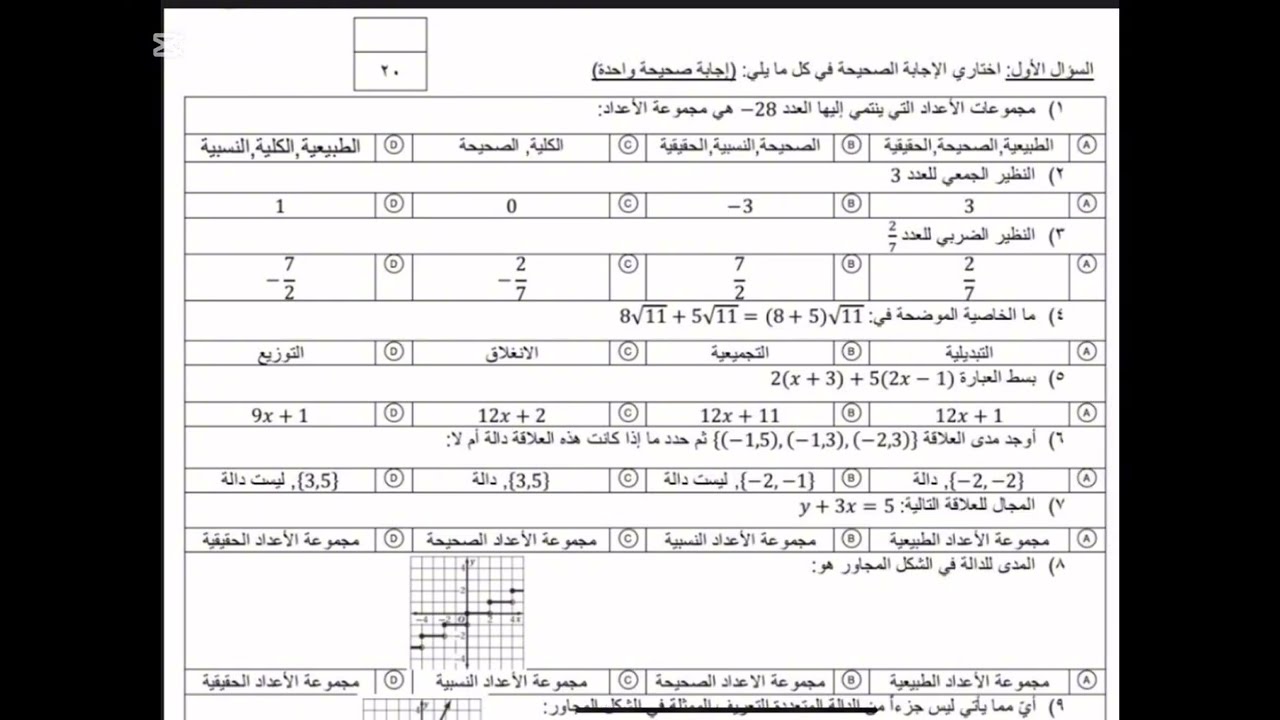 ٢٠
السؤال الأول: اختاري الإجابة الصحيحة في كل ما يلي: (إجابة صحيحة واحدة)
١) مجموعات الأعداد التي ينتمي إليها العدد 28− هي مجموعة الأعداد:
A الطبيعية,الصحيحة,الحقيقية B الصحيحة,النسبية,الحقيقية C الكلية, الصحيحة D الطبيعية,الكلية,النسبية
٢) النظير الجمعي للعدد 3
A 3 B −3 C 0 D 1
٣) النظير الضربي للعدد 2/7
A 2/7 B 7/2 C −2/7 D −7/2
٤) ما الخاصية الموضحة في: 8√11 + 5√11 = (8 + 5)√11
A التبديلية B التجميعية C الانغلاق D التوزيع
٥) بسط العبارة 2(x + 3) + 5(2x − 1)
A 12x + 1 B 12x + 11 C 12x + 2 D 9x + 1
٦) أوجد مدى العلاقة {(−1,5), (−1,3), (−2,3)} ثم حدد ما إذا كانت هذه العلاقة دالة أم لا:
A {−2, −2}, دالة B {−2, −1}, ليست دالة C {3,5}, دالة D {3,5}, ليست دالة
٧) المجال للعلاقة التالية: y + 3x = 5
A مجموعة الأعداد الطبيعية B مجموعة الأعداد النسبية C مجموعة الأعداد الصحيحة D مجموعة الأعداد الحقيقية
٨) المدى للدالة في الشكل المجاور هو:
A مجموعة الأعداد الطبيعية B مجموعة الاعداد الصحيحة C مجموعة الأعداد النسبية D مجموعة الأعداد الحقيقية
٩) أيّ مما يأتي ليس جزءاً من الدالة المتعددة التعريف الممثلة في الشكل المجاور: